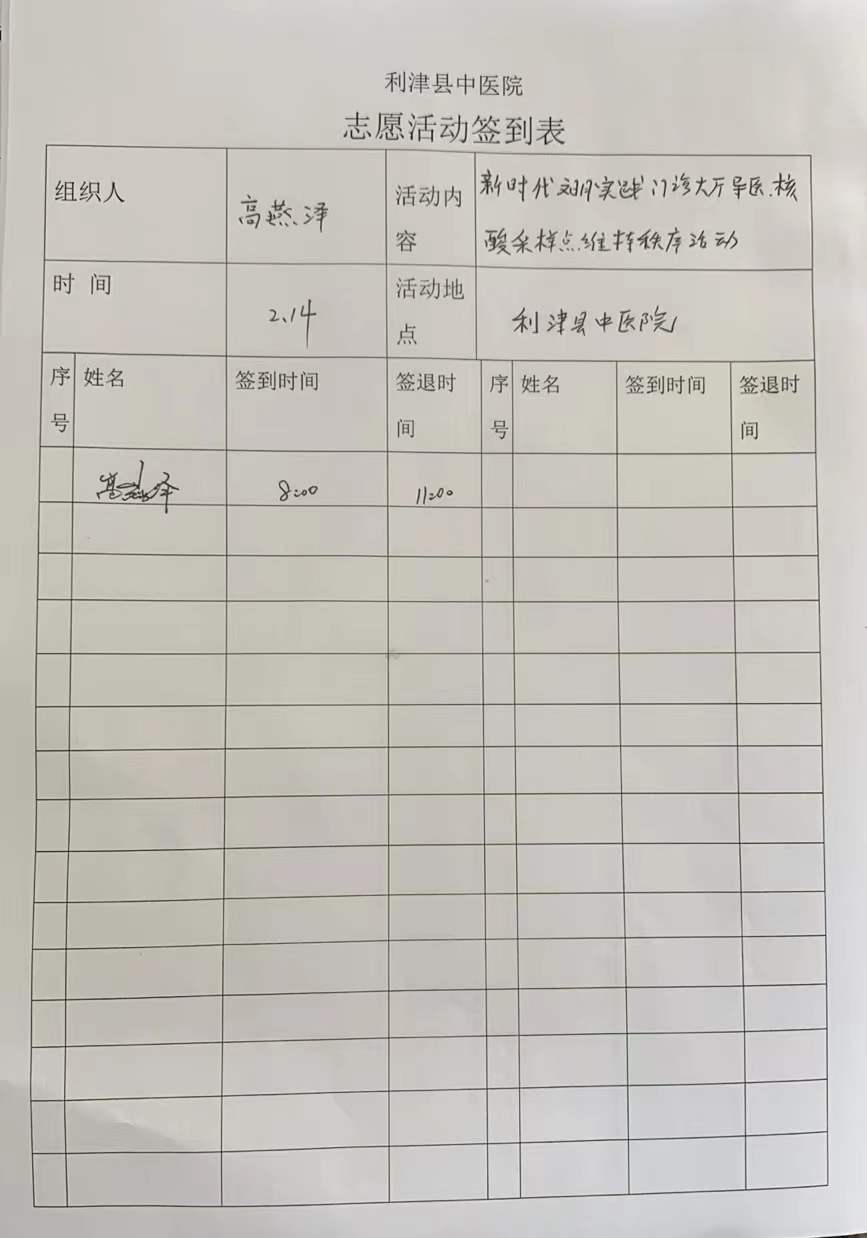 利津县中医院
志愿活动签到表
组织人 高燕泽 活动内容 新时代文明实践门诊大厅导医、核
酸采样点维持秩序活动
时 间 2、14 活动地点 利津县中医院
序号 姓名 签到时间 签退时间 序号 姓名 签到时间 签退时间
高燕泽 8:00 11:00